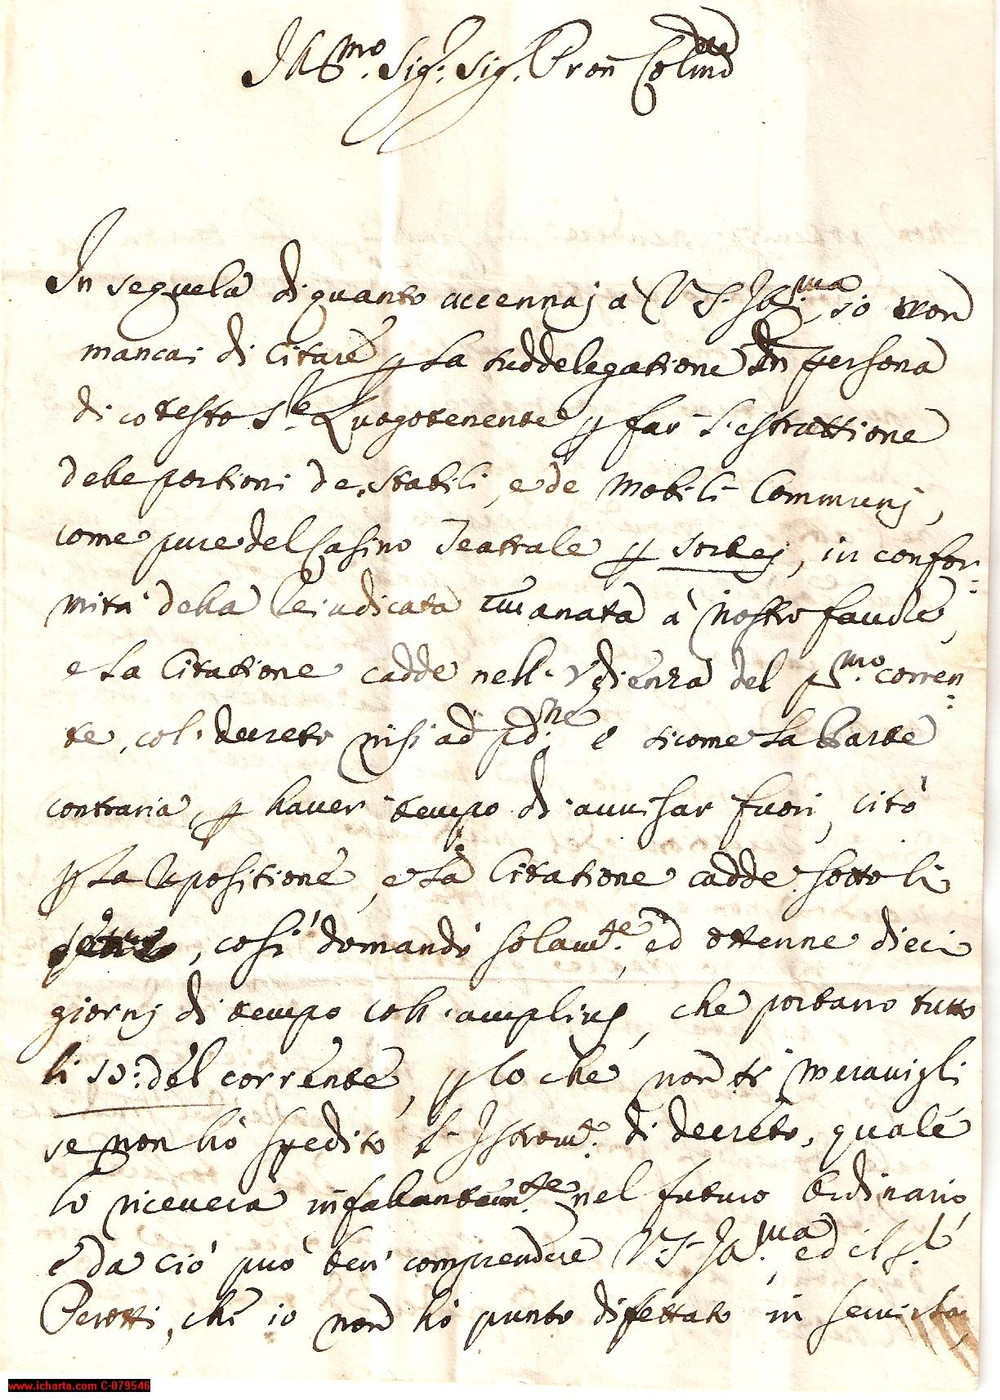 Ill.mo Sig.r Sig. Pron Colmo
In sequela di quanto accennaj à V.S. Ill.ma io non
mancai di citare p la suddelegatione in persona
di cotesto S.re Luogotenente p far l'estrattione
delle portioni de Stabili, e de Mobili Communj,
come pure del Casino Teatrale p sortej, in confor-
mità della Rejudicata emanata à nostro favore,
e la Citatione cadde nell'Udienza del p.mo corren-
te, col decreto nisi ad p.dine e sicome la Parte
contraria, p haver tempo di avvisar fuori, citò
p la repositione, e la Citatione cadde sotto li
, così domandò solam.te, ed ottenne dieci
giornj di tempo coll'amplius, che portano tutto
li 10: del corrente, p lo che non si meravigli
se non hò spedito l'Istrom.to di decreto, quale
lo riceverà infalantem.te nel futuro Ordinario,
e da ciò può ben comprendere V.S. Ill.ma, ed il S.r
Perotti, che io non hò punto difettato in servirla,
www.icharta.com C-079546